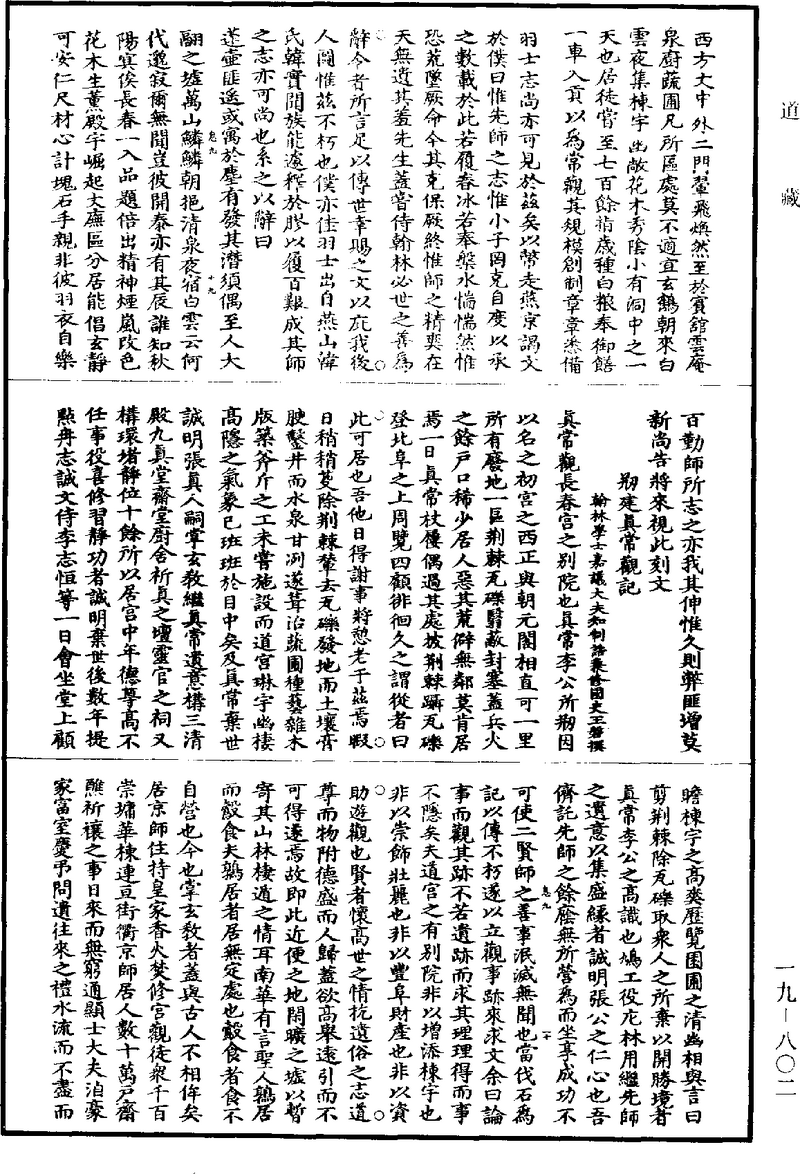 道藏
西方丈中外二門翬飛煥然至於賓舘雲庵
泉廚蔬圃凡所區處莫不適宜玄鶴朝來白
雲夜集棟宇出敞花木秀陰小有洞中之一
天也居徒嘗至七百餘指歲種白粮奉御饍
一車入貢以為常觀其規模創制章章悉備
羽士志尚亦可見於兹矣以幣走燕京謁文
於僕曰惟先師之志惟小子罔克自度以承
之數載於此若履春冰若奉槃水惴惴然惟
恐荒墜厥命今其克保厥終惟師之精爽在
天無遺其羞先生蓋嘗待翰林必世之善為
辭令者所言足以傳世幸賜之文以庇我後
人圖惟兹不朽也僕亦佳羽士出自燕山韓
氏韓實聞族能遽釋於膠以履百艱成其師
之志亦可尚也系之以辭曰
蓬壺匪遥或寓於塵有發其潛須偶至人大
翮之墟萬山鱗鱗朝挹清泉夜宿白雲云何
卷九
十九
代邈寂爾無聞豈彼開泰亦有其辰誰知秋
陽寔俟長春一入品題倍出精神煙嵐改色
花木生薰殿宇崛起文廡區分居能倡玄靜
可安仁尺材心計塊石手親非彼羽衣自樂
百勤師所志之亦我其伸惟久則弊匪增莫
新尚告將來視此刻文
剏建真常觀記
翰林學士嘉議大夫知制誥兼修國史王磐撰
真常觀長春宮之别院也真常李公所剏因
以名之初宮之西正與朝元閣相直可一里
所有廢地一區荆棘瓦礫翳蔽封塞蓋兵火
之餘戸口稀少居人惡其荒僻無鄰莫肯居
焉一日真常杖僮偶過其處披荆棘躋瓦礫
登北阜之上周覽四顧徘徊久之謂從者曰
此可居也吾他日得謝事將憩老于茲焉暇
日稍稍芟除荆棘輦去瓦礫發地而土壤膏
腴鑿井而水泉甘冽遂葺治蔬圃種藝雜木
版築斧斤之工未嘗施設而道宮琳宇幽棲
髙隱之氣象已班班於目中矣及真常棄世
誠明張真人嗣掌玄教繼真常遺意構三清
殿九真堂齋堂廚舍祈真之壇靈官之祠又
構環堵靜位十餘所以居宮中年德尊髙不
任事役喜修習靜功者誠明棄世後數年提
點冉志誠文侍李志恒等一日會坐堂上顧
瞻棟宇之髙爽歷覽園圃之清幽相與言曰
剪荆棘除瓦礫取衆人之所棄以開勝境者
真常李公之髙識也鳩工役庀林用繼先師
之遺意以集盛緣者誠明張公之仁心也吾
儕託先師之餘廕無所營為而坐享成功不
卷九
二十
可使二賢師之善事泯滅無聞也當伐石為
記以傳不朽遂以立觀事跡來求文余曰論
事而觀其跡不若遺跡而求其理理得而事
不隱矣夫道宮之有别院非以增添棟宇也
非以崇飾壯麗也非以豐阜財產也非以資
助遊觀也賢者懷髙世之情抗遺俗之志道
尊而物附德盛而人歸蓋欲髙舉遠引而不
可得遂焉故即此近便之地閑曠之墟以暫
寄其山林棲遁之情耳南華有言聖人鶉居
而鷇食夫鶉居者居無定處也鷇食者食不
自營也今也掌玄教者蓋與古人不相侔矣
居京師住持皇家香火焚修宮觀徒衆千百
崇墉華棟連亘街衢京師居人數十萬戸齋
醮祈禳之事日來而無窮通顯士大夫洎豪
家富室慶弔問遺往來之禮水流而不盡而
一九－八〇二